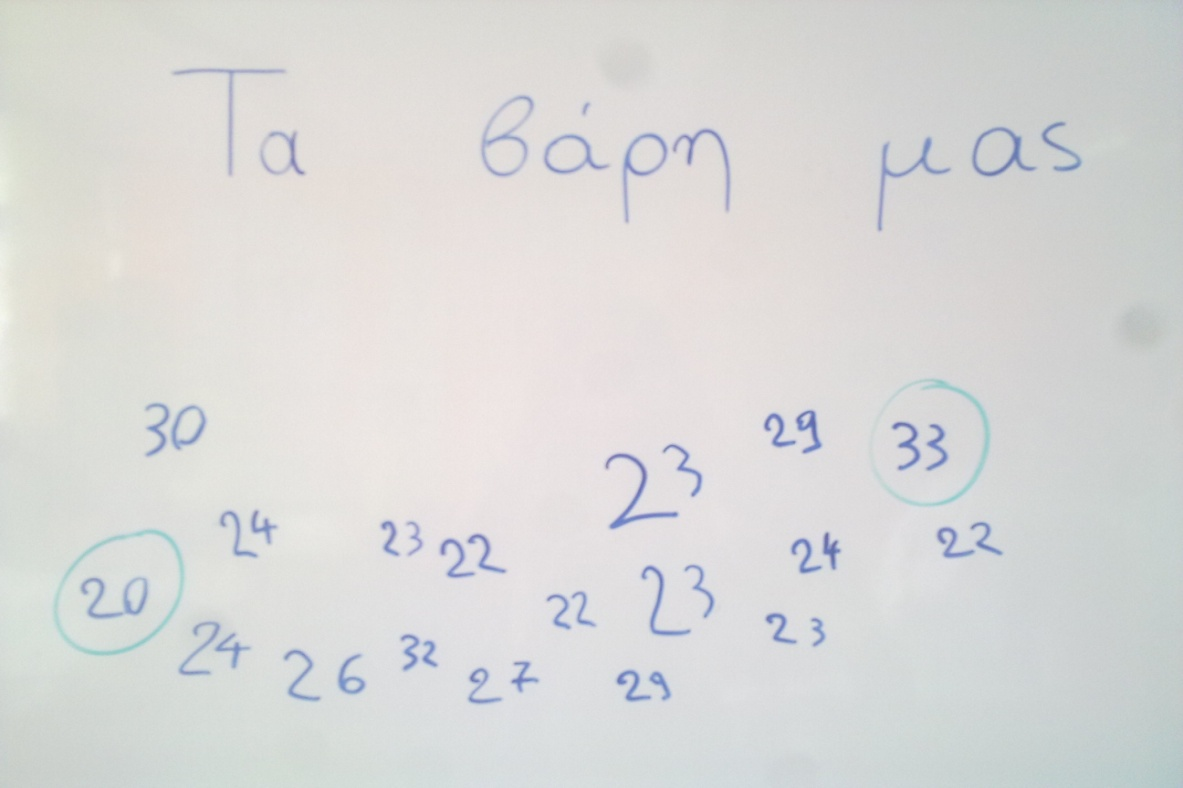 Τα βάρη μας
30 29 33
23
24 23 22 24 22
20 22 23
24 26 32 27 29 23